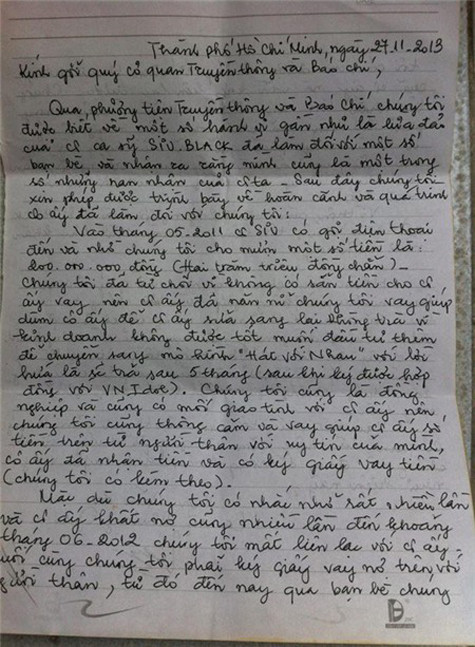 Thành phố Hồ Chí Minh, ngày 27.11.2013
Kính gởi quý cơ quan Truyền thông và Báo chí,
Qua phương tiện Truyền thông và Báo Chí chúng tôi
được biết về một số hành vi gần như là lừa đảo
của cô ca sỹ SIU.BLACK đã làm đối với một số
bạn bè và nhận ra rằng mình cũng là một trong
số những nạn nhân của cô ta - Sau đây chúng tôi
xin phép được trình bày về hoàn cảnh và quá trình
cô ấy đã làm đối với chúng tôi:
Vào tháng 05-2011 cô SIU có gởi điện thoại
đến và nhờ chúng tôi cho mượn một số tiền là:
200.000.000 đồng (Hai trăm triệu đồng chẵn) -
Chúng tôi đã từ chối vì không có sẵn tiền cho cô
ấy vay nên cô ấy đã năn nỉ chúng tôi vay giúp
dùm cô ấy để cô ấy sửa sang lại phòng trà vì
kinh doanh không được tốt muốn đầu tư thêm
để chuyển sang mô hình "Hát Với Nhau" với lời
hứa là sẽ trả sau 5 tháng (sau khi ký được hợp
đồng với VN.Idol). Chúng tôi cũng là đồng
nghiệp và cũng có mối giao tình với cô ấy nên
chúng tôi cũng thông cảm và vay giúp cô ấy số
tiền trên từ người thân với uy tín của mình,
cô ấy đã nhận tiền và có ký giấy vay tiền
(chúng tôi có kèm theo).
Mặc dù chúng tôi có nhắc nhở rất nhiều lần
và cô ấy khất nợ cũng nhiều lần đến khoảng
tháng 06-2012 chúng tôi mất liên lạc với cô ấy
cuối cùng chúng tôi phải ký giấy vay nợ trên với
người thân, từ đó đến nay qua bạn bè chúng